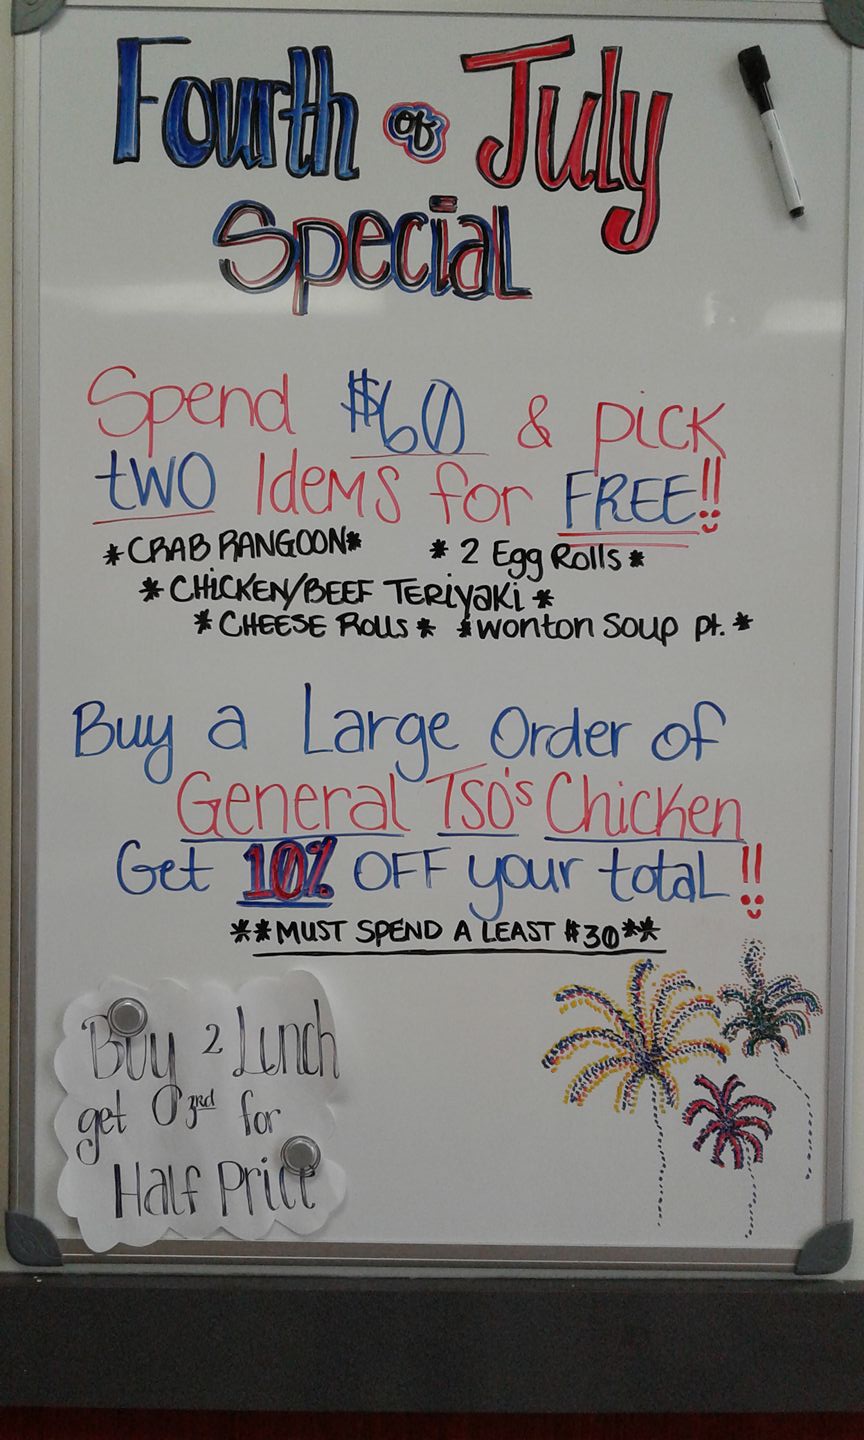 Fourth of July
Special
Spend $60 & pick
two Idems for FREE!!
*CRAB RANGOON* * 2 Egg Rolls *
* CHICKEN/BEEF TERiyaki *
* CHEESE Rolls * *wonton soup pt. *
Buy a Large Order of
General Tso's Chicken
Get 10% OFF your total !!
**MUST SPEND A LEAST $30**
Buy 2 Lunch
get a 3rd for
Half Price